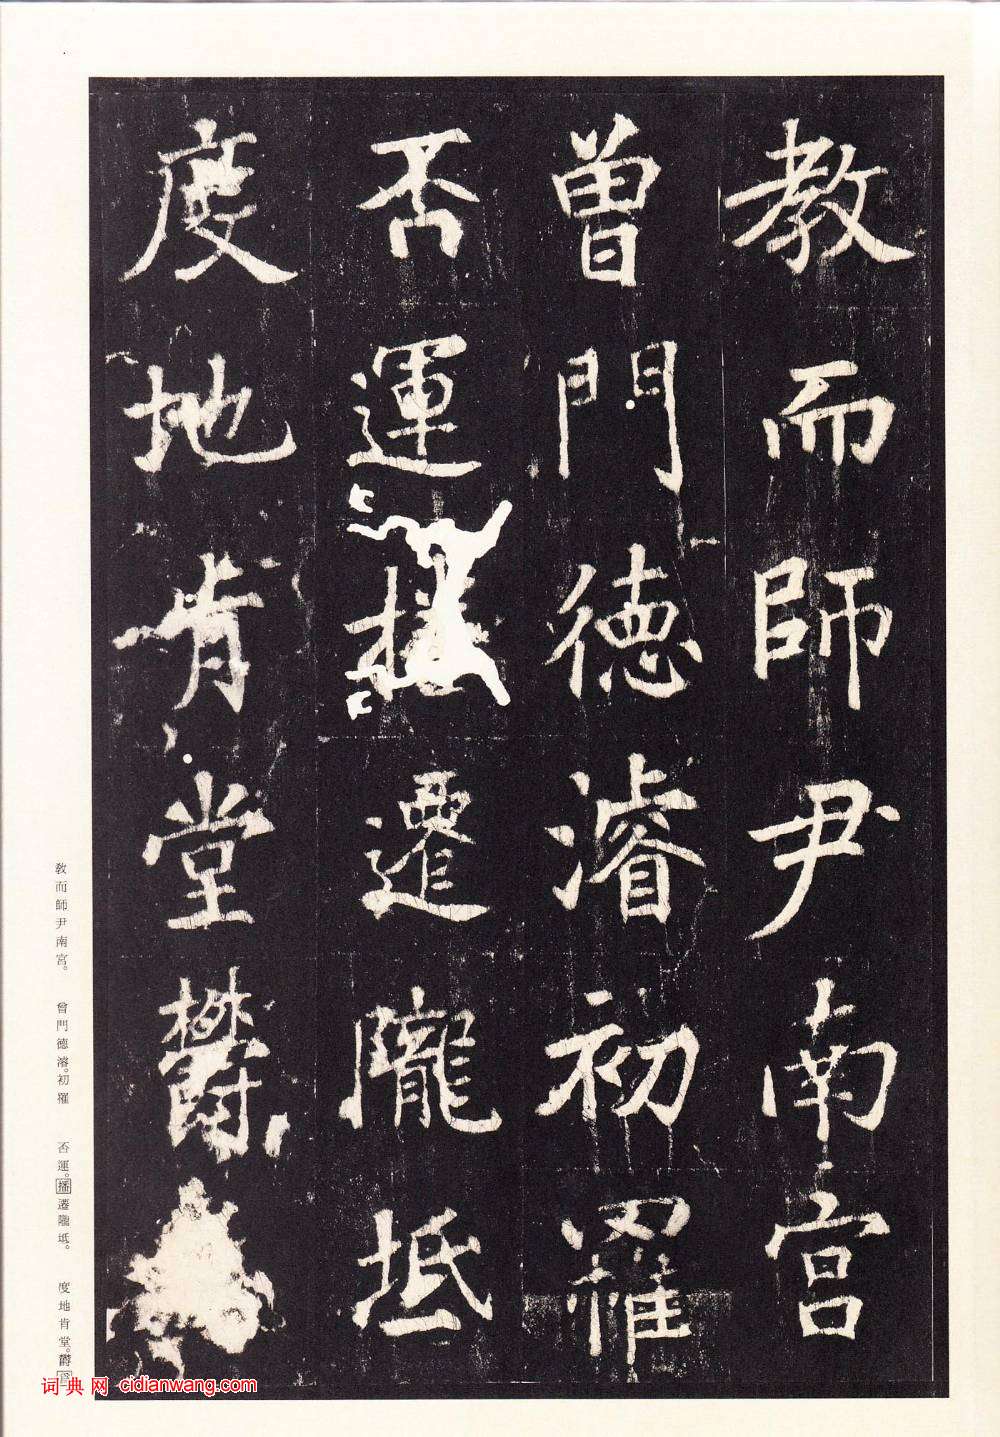 教而師尹南宮
曾門德濬初羅
否運播遷隴坻
度地肯堂欝
教而師尹南宮。 曾門德濬。初羅 否運。播遷隴坻。 度地肯堂。欝
词典网 cidianwang.com